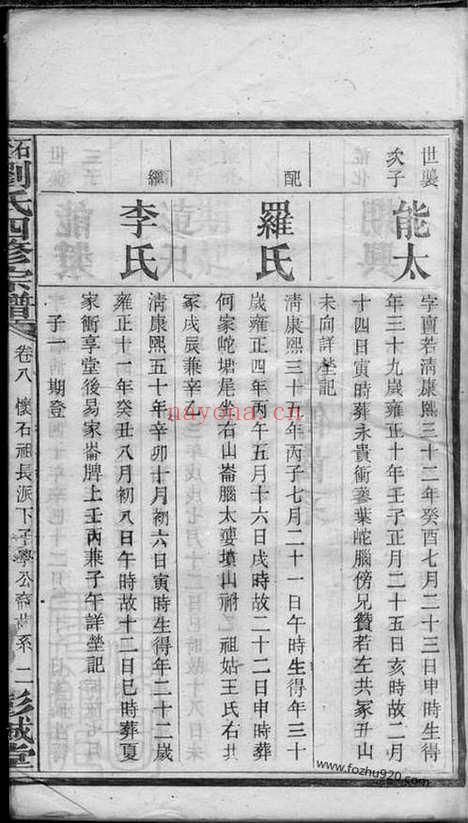 世襲
次子
能太
字賣若清康熙三十二年癸酉七月二十三日申時生得
年三十九歲雍正十年壬子正月二十五日亥時故二月
十四日寅時葬永貴衝蔘葉岮腦傍兄贊若左共冢丑山
未向詳塋記
配
羅氏
清康熙三十五年丙子七月二十一日午時生得年三十
歲雍正四年丙午五月十六日戌時故二十二日申時葬
何家岮塘岸坐右山崙腦太婆墳山祔乙祖姑王氏右共
冢戌辰兼辛
繼
李氏
清康熙五十年辛卯十月初六日寅時生得年二十二歲
雍正十一年癸丑八月初八日午時故十二日巳時葬夏
家衝享堂後易家崙牌上壬丙兼子午詳塋記
子一 期登
石
劉氏四修宗譜
卷八 懷石祖長派下子學公裔 系 二
彭城堂
nayona.cn
www.fozhu920.com